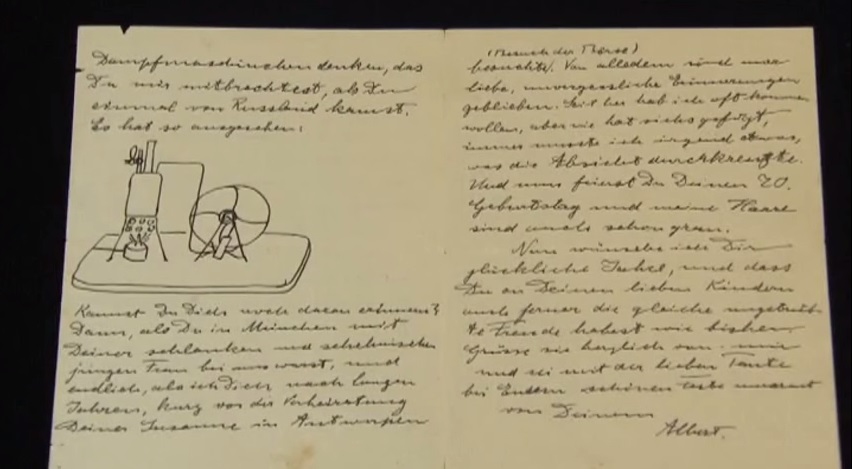 Dampfmaschinchen denken, das
Du mir mitbrachtest, als Du
einmal von Russland kamst.
Es hat so ausgesehen:
Kannst Du Dich noch daran erinnern?
Dann, als Du in München mit
Deiner schlanken und schelmischen
jungen Frau bei uns warst, und
endlich, als ich Dich nach langen
Jahren, kurz vor der Verheiratung
Deiner Susanne in Antwerpen
(Besuch der Börse)
besuchte. Von alledem sind mir
liebe, unvergessliche Erinnerungen
geblieben. Seither hab ich oft kommen
wollen, aber nie hat sichs gefügt,
immer musste ich irgend etwas,
was die Absicht durchkreuzte.
Und nun feierst Du Deinen 70.
Geburtstag und meine Haare
sind auch schon grau.
Nun wünsche ich Dir
glückliche Jubel, und dass
Du an Deinen lieben Kindern
auch ferner die gleiche ungetrüb-
te Freude habest wie bisher.
Grüsse sie herzlich von mir
und sei mit der lieben Tante
bei Euerm schönen Feste umarmt
von Deinem
Albert.